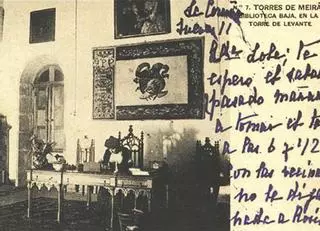 º 7. TORRES DE MEIRÁ
BIBLIOTECA BAJA, EN LA
TORRE DE LEVANTE
La Coruña
Lola; te
esperó el sabado
pasado mañana
a tomar el té
a las 6 y 1/2
con las vecinas
no le digas
nada a